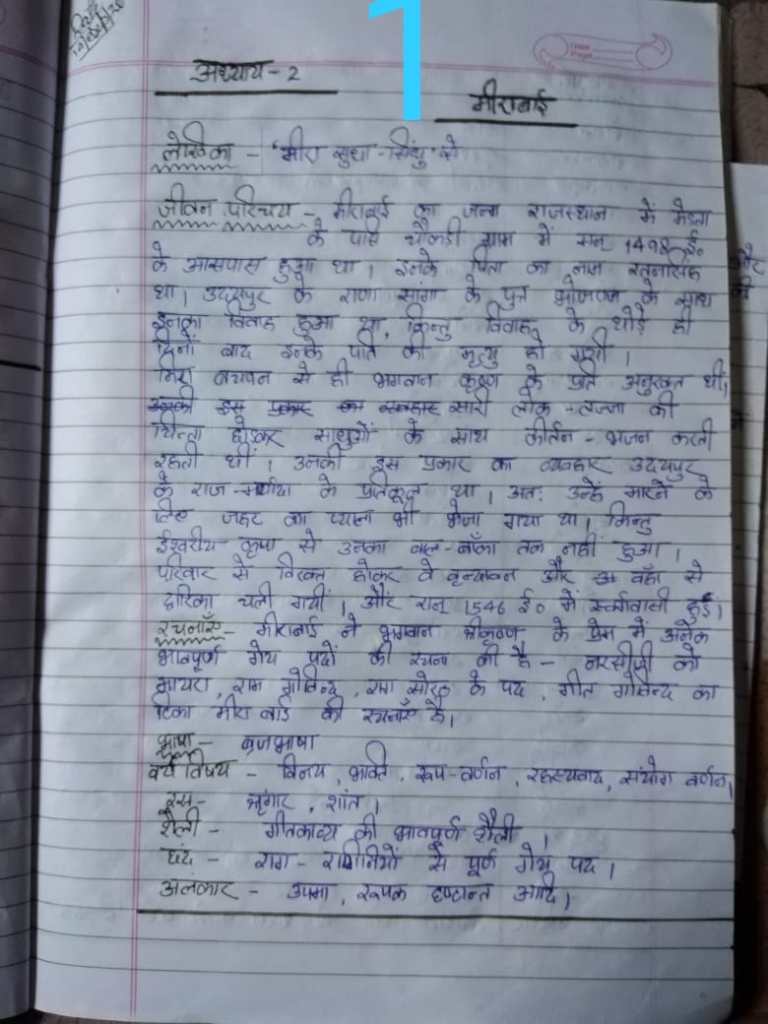 1
अध्याय - 2
मीराबाई
लेखिका - 'मीरा सुधा-सिंधु' से
जीवन परिचय - मीराबाई का जन्म राजस्थान में मेड़ता
के पास चौकडी ग्राम में सन् 1498 ई०
के आसपास हुआ था। इनके पिता का नाम रतनसिंह
था। उदयपुर के राणा सांगा के पुत्र भोजराज के साथ
इनका विवाह हुआ था, किन्तु विवाह के थोड़े ही
दिनों बाद इनके पति की मृत्यु हो गयी।
मिरा बचपन से ही भगवान कृष्ण के प्रति अनुरक्त थी।
सारी लोक-लज्जा की
चिन्ता छोडकर साधुओं के साथ कीर्तन-भजन करती
रहती थीं। उनकी इस प्रकार का व्यवहार उदयपुर
के राज-मर्यादा के प्रतिकूल था। अतः उन्हें मारने के
लिए जहर का प्याला भी भेजा गया था। किन्तु
ईश्वरीय-कृपा से उनका बाल-बाँका तक नहीं हुआ।
परिवार से विरक्त होकर वे वृन्दावन और वहाँ से
द्वारिका चली गयीं। और सन् 1546 ई० में स्वर्गवासी हुईं।
रचनाएँ - मीराबाई ने भगवान श्रीकृष्ण के प्रेम में अनेक
भावपूर्ण गेय पदों की रचना की है - नरसीजी को
मायरा, राग गोविन्द, राग सोरठ के पद, गीत गोविन्द का
टिका मीराबाई की रचनाएँ है।
भाषा - ब्रजभाषा
वर्ण्य विषय - विनय, भक्ति, रूप-वर्णन, रहस्यवाद, संयोग वर्णन।
रस - श्रृंगार, शांत।
शैली - गीतकाव्य की भावपूर्ण शैली।
छंद - राग-रागिनियों से पूर्ण गेय पद।
अलंकार - उपमा, रूपक दृष्टान्त आदि।